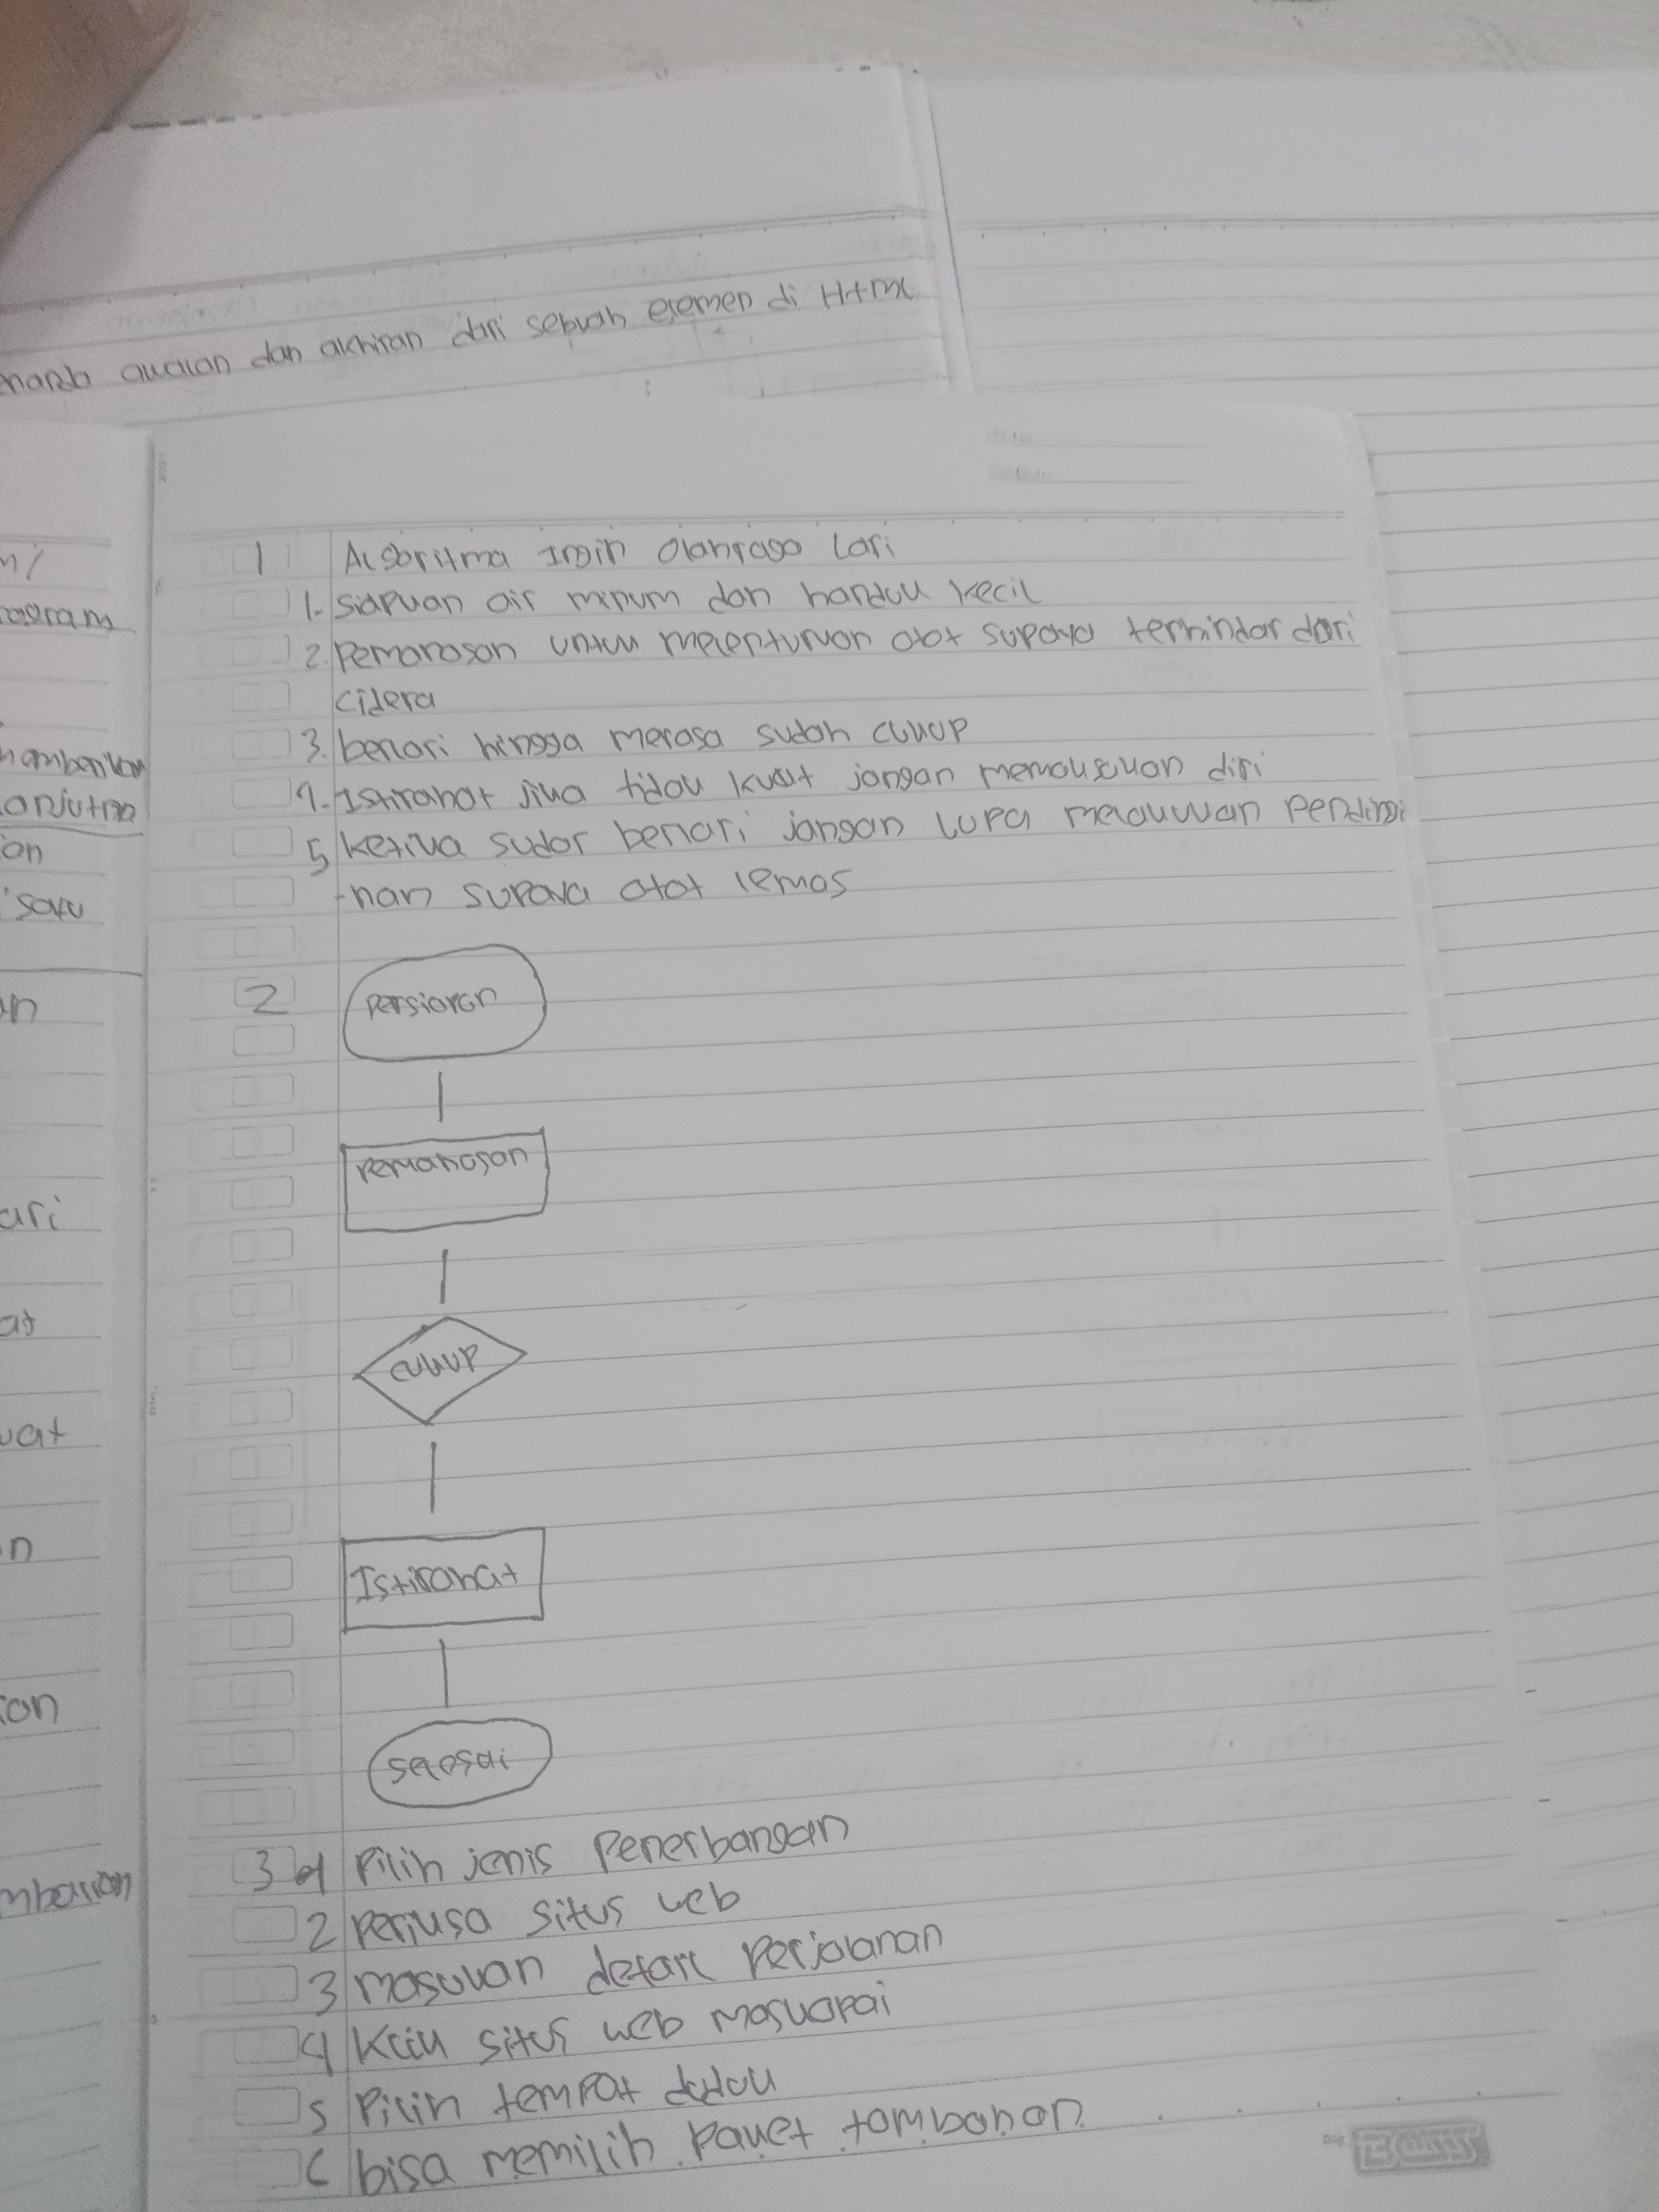 awalan dan akhiran dari sebuah elemen di Html
1 Algoritma Ingin Olahraga Lari
1. siapkan air minum dan handuk kecil
2. pemanasan untuk melenturkan otot supaya terhindar dari
cidera
3. berlari hingga merasa sudah cukup
4. Istirahat jika tidak kuat jangan memaksakan diri
5 ketika sudar berlari jangan lupa melakukan pendingi
-nan supaya otot lemas
2 persiapan
pemanasan
cukup
Istirahat
selesai
3 1 Pilih jenis Penerbangan
2 periksa situs web
3 masukan detail perjalanan
4 Klik situs web maskapai
5 Pilih tempat duduk
6 bisa memilih paket tambahan
ogram
anjutna
ion
satu
an
ari
at
uat
n
ion